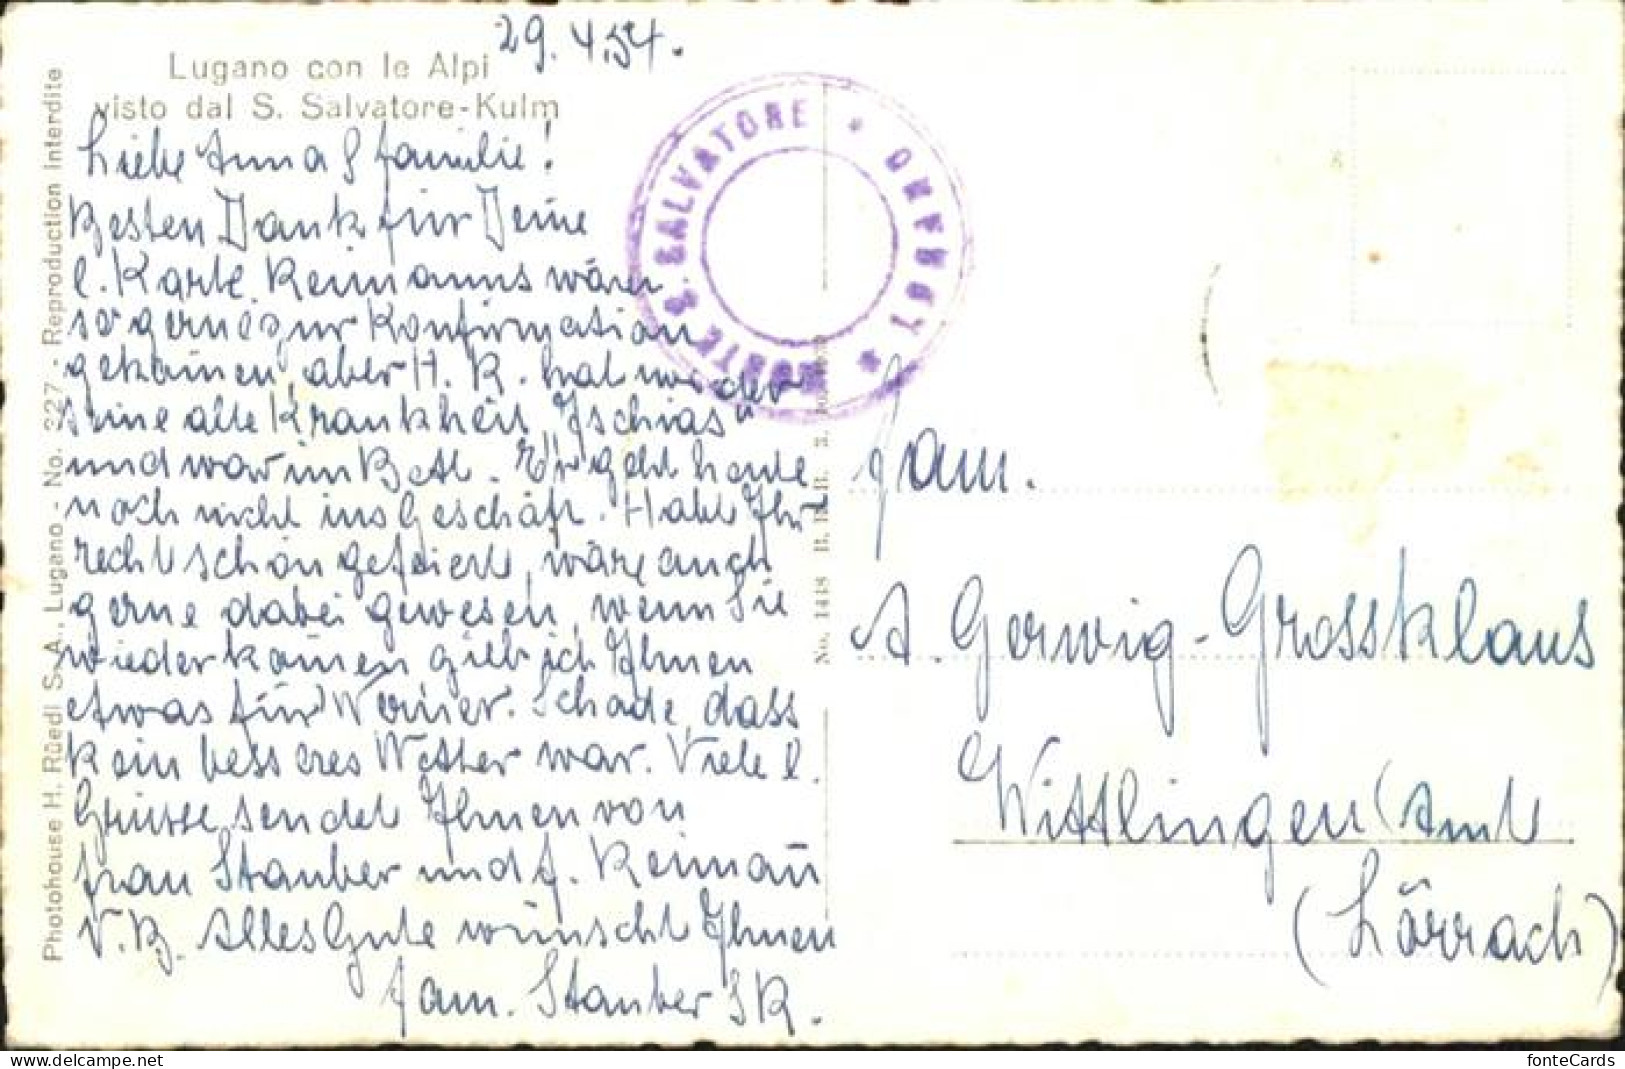 29.4.54.
Lugano con le Alpi
visto dal S. Salvatore-Kulm
Liebe Anna & Familie!
Besten Dank für Deine
l. Karte. Reimanns wären
so gerne zur Konfirmation
gekom̄en, aber H. R. hat wieder
seine alte Krankheit „Ischias"
und war im Bett. Er geht heute
noch nicht ins Geschäft. Habt Ihr
recht schön gefeiert, wäre auch
gerne dabei gewesen, wenn Sie
wieder kom̄en gieb ich Ihnen
etwas für Werner. Schade, dass
kein besseres Wetter war. Viele l.
Grüsse sendet Ihnen von
Frau Stauber und F. Reiman̄
V. B. Alles Gute wünscht Ihnen
Fam. Stauber & R.
Photohouse H. Rüedi S.A., Lugano - No. 227 - Reproduction interdite
MONTE S. SALVATORE * LUGANO *
No. 1448 B. R. B.
Fam.
A. Gerwig-Grossklaus
Wittlingen (Amt
(Lörrach)
fonteCards